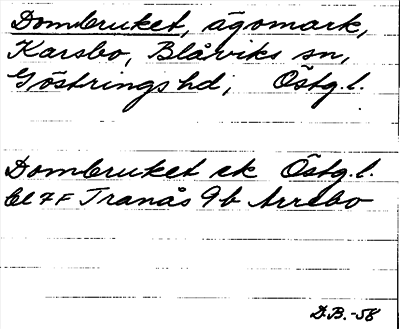 Dombruket, ägomark,
Karsbo, Blåviks sn,
Göstrings hd, Östg.l.
Dombruket ek Östg.l.
Bl 7 F Tranås 9b Arrebo
D.B.-58